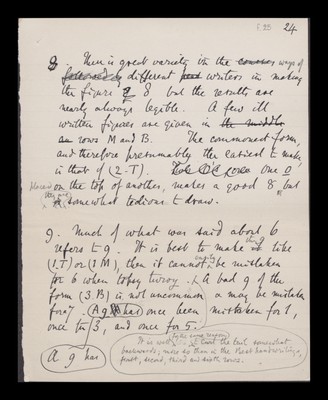 f.25 24
8. There is great variety in the courses ways of
different writers in making
the figure 8 but the results are
nearly always legible. A few ill
written figures are given in the middle
rows M and B. The commonest form,
and therefore presumably the easiest to make
is that of (2.T). One O
placed on the top of another, makes a good 8 but
they are somewhat tedious to draw.
9. Much of what was said about 6
refers to 9. It is best to make the 9 like
(1.T) or (1.M), then it cannot easily be mistaken
for 6 when topsy turvy. A bad 9 of the
form (3.B) is not uncommon & may be mistaken
for 7. (A 9 has) once been mistaken for 1,
once for 3, and once for 5.
It is well for the same reason to bend the tail somewhat
backwards, more so than in the best handwriting,
first, second, third and sixth rows.
A 9 has